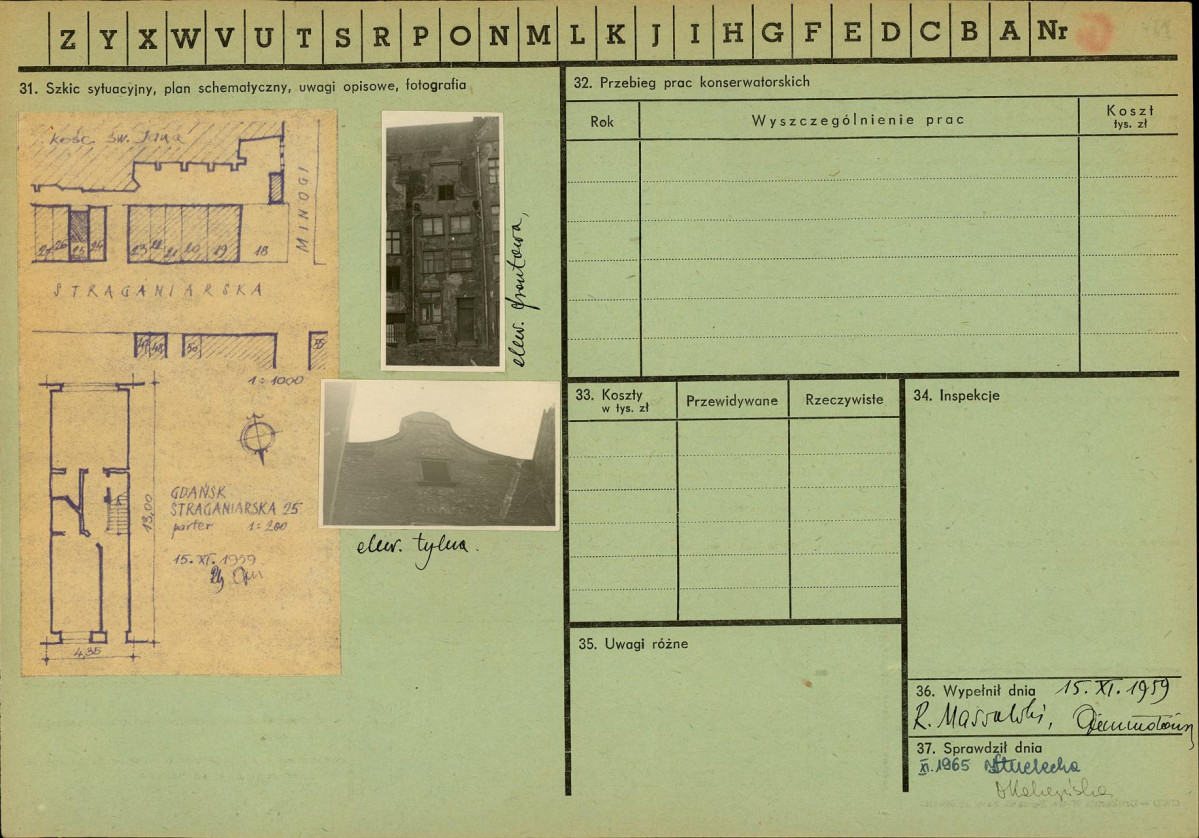 Z Y X W V U T S R P O N M L K J I H G F E D C B A Nr
31. Szkic sytuacyjny, plan schematyczny, uwagi opisowe, fotografia
kość. św. Jana
MINOGI
27 26 25 24 23 22 21 20 19 18
STRAGANIARSKA
47 48 50 55
1:1000
GDAŃSK
STRAGANIARSKA 25
parter 1:200
15.XI.1959
13,00
4,35
elew. frontowa,
elew. tylna.
32. Przebieg prac konserwatorskich
Rok
Wyszczególnienie prac
Koszt
tys. zł
33. Koszty
w tys. zł
Przewidywane
Rzeczywiste
34. Inspekcje
35. Uwagi różne
36. Wypełnił dnia 15.XI.1959
R. Massalski,
37. Sprawdził dnia
XI.1965